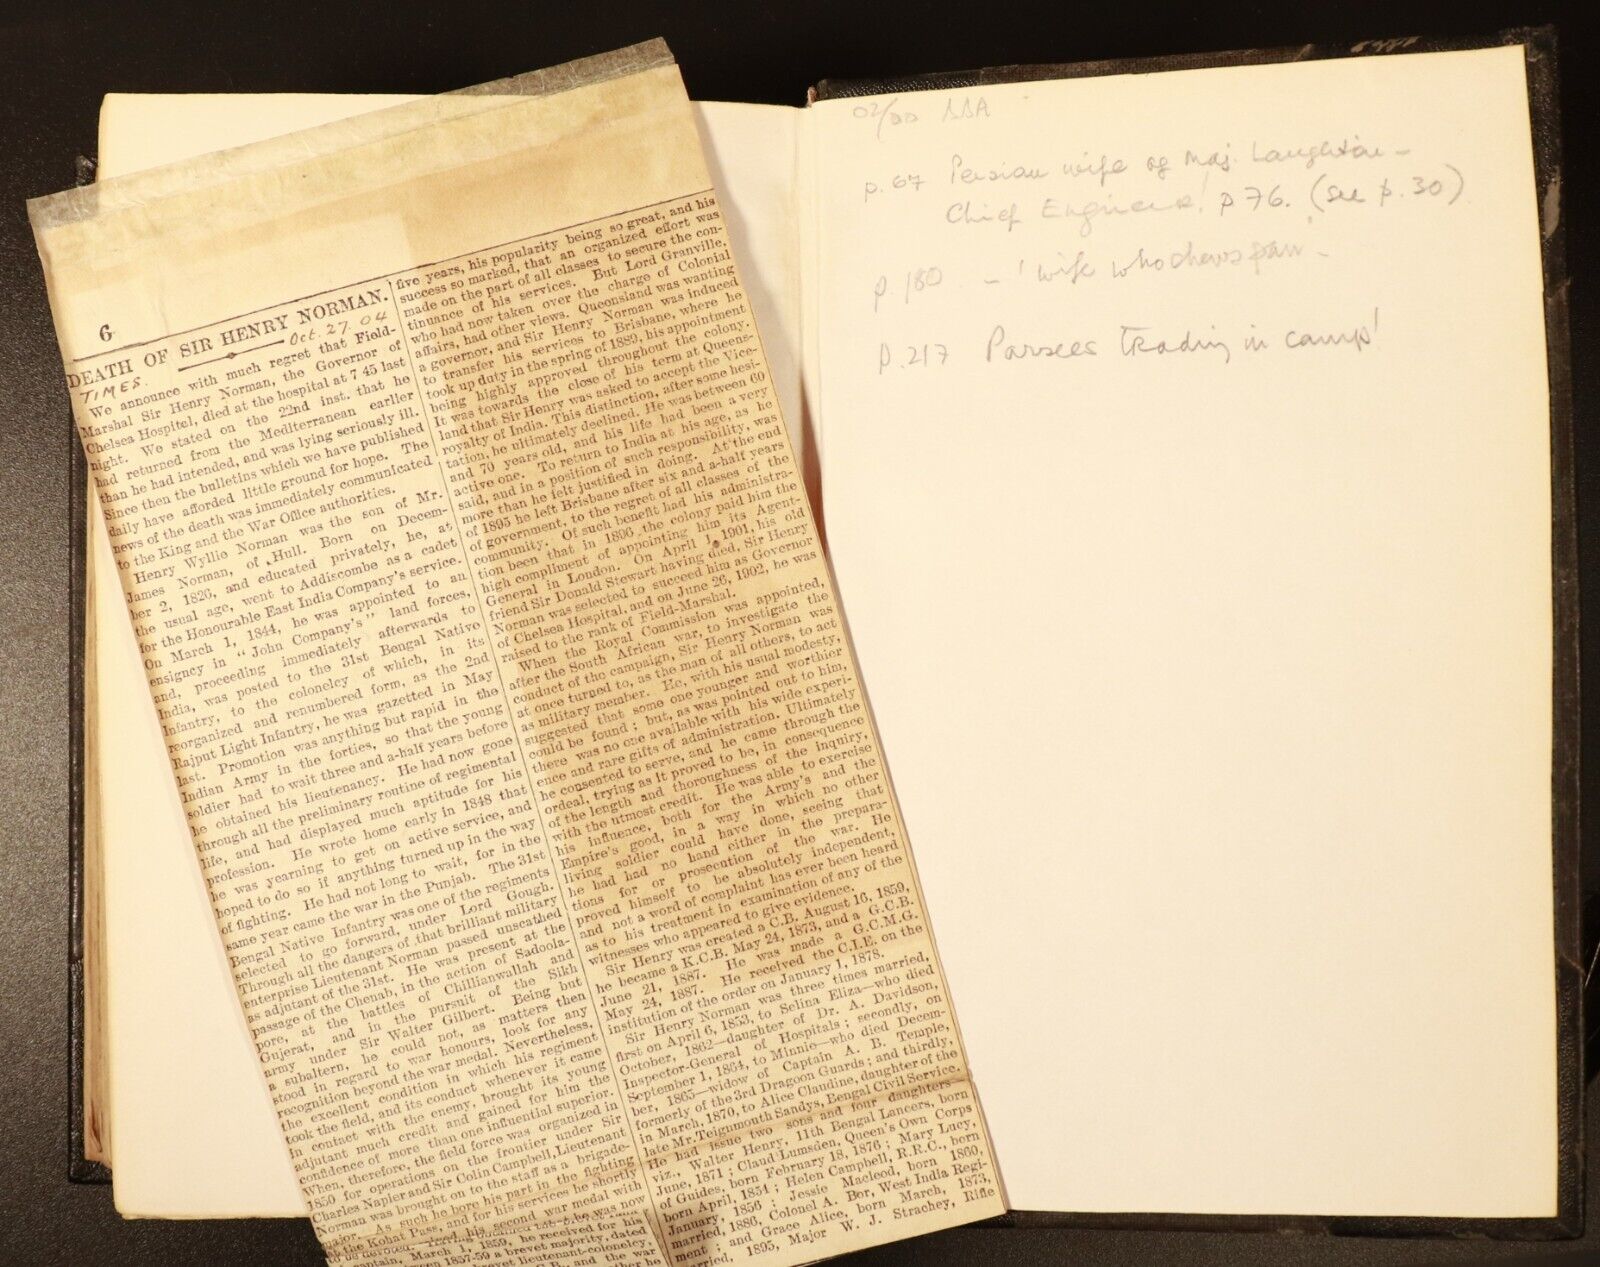 6
DEATH OF SIR HENRY NORMAN.
TIMES. Oct. 27 04
We announce with much regret that Field-
Marshal Sir Henry Norman, the Governor of
Chelsea Hospital, died at the hospital at 7 45 last
night. We stated on the 22nd inst. that he
had returned from the Mediterranean earlier
than he had intended, and was lying seriously ill.
Since then the bulletins which we have published
daily have afforded little ground for hope. The
news of the death was immediately communicated
to the King and the War Office authorities.
Henry Wyllie Norman was the son of Mr.
James Norman, of Hull. Born on Decem-
ber 2, 1826, and educated privately, he, at
the usual age, went to Addiscombe as a cadet
for the Honourable East India Company's service.
On March 1, 1844, he was appointed to an
ensigncy in "John Company's" land forces,
and, proceeding immediately afterwards to
India, was posted to the 31st Bengal Native
Infantry, to the colonelcy of which, in its
reorganized and renumbered form, as the 2nd
Rajput Light Infantry, he was gazetted in May
last. Promotion was anything but rapid in the
Indian Army in the forties, so that the young
soldier had to wait three and a-half years before
he obtained his lieutenancy. He had now gone
through all the preliminary routine of regimental
life, and had displayed much aptitude for his
profession. He wrote home early in 1848 that
he was yearning to get on active service, and
hoped to do so if anything turned up in the way
of fighting. He had not long to wait, for in the
same year came the war in the Punjab. The 31st
Bengal Native Infantry was one of the regiments
selected to go forward, under Lord Gough.
Through all the dangers of that brilliant military
enterprise Lieutenant Norman passed unscathed
as adjutant of the 31st. He was present at the
passage of the Chenab, in the action of Sadoola-
pore, at the battles of Chillianwallah and
Gujerat, and in the pursuit of the Sikh
army under Sir Walter Gilbert. Being but
a subaltern, he could not, as matters then
stood in regard to war honours, look for any
recognition beyond the war medal. Nevertheless,
the excellent condition in which his regiment
took the field, and its conduct whenever it came
in contact with the enemy, brought its young
adjutant much credit and gained for him the
confidence of more than one influential superior.
When, therefore, the field force was organized in
1850 for operations on the frontier under Sir
Charles Napier and Sir Colin Campbell, Lieutenant
Norman was brought on to the staff as a brigade-
major. As such he bore his part in the fighting
at the Kohat Pass, and for his services he shortly
his second war medal with
was now
captain, March 1, 1859, he received for his
1857-59 a brevet majority, dated
brevet lieutenant-colonelcy,
and the war
five years, his popularity being so great, and his
success so marked, that an organized effort was
made on the part of all classes to secure the con-
tinuance of his services. But Lord Granville,
who had now taken over the charge of Colonial
affairs, had other views. Queensland was wanting
a governor, and Sir Henry Norman was induced
to transfer his services to Brisbane, where he
took up duty in the spring of 1889, his appointment
being highly approved throughout the colony.
It was towards the close of his term at Queens-
land that Sir Henry was asked to accept the Vice-
royalty of India. This distinction, after some hesi-
tation, he ultimately declined. He was between 60
and 70 years old, and his life had been a very
active one. To return to India at his age, as he
said, and in a position of such responsibility, was
more than he felt justified in doing. At the end
of 1895 he left Brisbane after six and a-half years
of government, to the regret of all classes of the
community. Of such benefit had his administra-
tion been that in 1896 the colony paid him the
high compliment of appointing him its Agent-
General in London. On April 1, 1901, his old
friend Sir Donald Stewart having died, Sir Henry
Norman was selected to succeed him as Governor
of Chelsea Hospital, and on June 26, 1902, he was
raised to the rank of Field-Marshal.
When the Royal Commission was appointed,
after the South African war, to investigate the
conduct of the campaign, Sir Henry Norman was
at once turned to, as the man of all others, to act
as military member. He, with his usual modesty,
suggested that some one younger and worthier
could be found; but, as was pointed out to him,
there was no one available with his wide experi-
ence and rare gifts of administration. Ultimately
he consented to serve, and he came through the
ordeal, trying as it proved to be, in consequence
of the length and thoroughness of the inquiry,
with the utmost credit. He was able to exercise
his influence, both for the Army's and the
Empire's good, in a way in which no other
living soldier could have done, seeing that
he had had no hand either in the prepara-
tions for or prosecution of the war. He
proved himself to be absolutely independent,
and not a word of complaint has ever been heard
as to his treatment in examination of any of the
witnesses who appeared to give evidence.
Sir Henry was created a C.B. August 16, 1859,
he became a K.C.B. May 24, 1873, and a G.C.B.
June 21, 1887. He was made a G.C.M.G.
May 24, 1887. He received the C.I.E. on the
institution of the order on January 1, 1878.
Sir Henry Norman was three times married,
first on April 6, 1853, to Selina Eliza—who died
October, 1862—daughter of Dr. A. Davidson,
Inspector-General of Hospitals; secondly, on
September 1, 1864, to Minnie—who died Decem-
ber, 1865—widow of Captain A. B. Temple,
formerly of the 3rd Dragoon Guards; and thirdly,
in March, 1870, to Alice Claudine, daughter of the
late Mr. Teignmouth Sandys, Bengal Civil Service.
He had issue two sons and four daughters—
viz., Walter Henry, 11th Bengal Lancers, born
June, 1871; Claud Lumsden, Queen's Own Corps
of Guides, born February 18, 1876; Mary Lucy,
born April, 1854; Helen Campbell, R.R.C., born
January, 1856; Jessie Macleod, born 1860,
married, 1886, Colonel A. Bor, West India Regi-
ment; and Grace Alice, born March, 1873,
married, 1895, Major W. J. Strachey, Rifle
p. 67 Persian wife of Maj. Laughton -
Chief Engineer! p 76. (see p. 30)
p. 180 - 'wife who chews pan' -
p. 217 Parsees trading in camp!